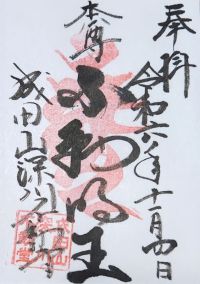 奉拝
令和六年十一月四日
本尊
不動明王
成田山深川不動堂